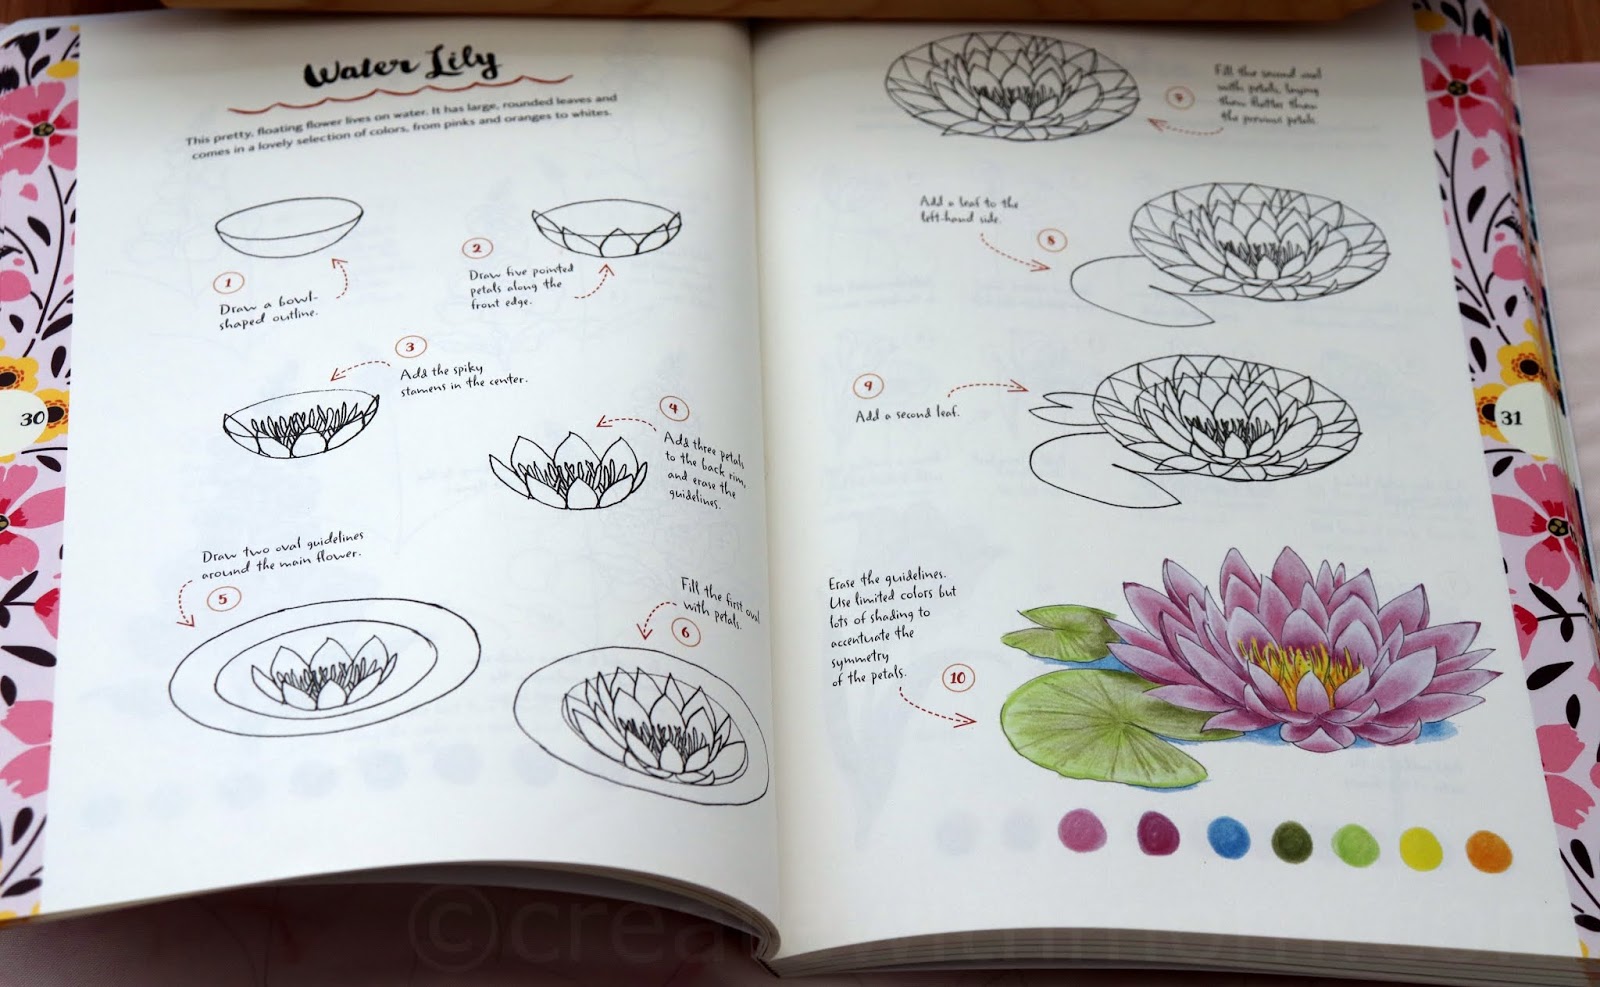 Water Lily
This pretty, floating flower lives on water. It has large, rounded leaves and
comes in a lovely selection of colors, from pinks and oranges to whites.
1
Draw a bowl-
shaped outline.
2
Draw five pointed
petals along the
front edge.
3
Add the spiky
stamens in the center.
4
Add three petals
to the back rim,
and erase the
guidelines.
Draw two oval guidelines
around the main flower.
5
Fill the first oval
with petals.
6
30
7
Fill the second oval
with petals, laying
them flatter than
the previous petals.
Add a leaf to the
left-hand side.
8
9
Add a second leaf.
Erase the guidelines.
Use limited colors but
lots of shading to
accentuate the
symmetry
of the petals.
10
31